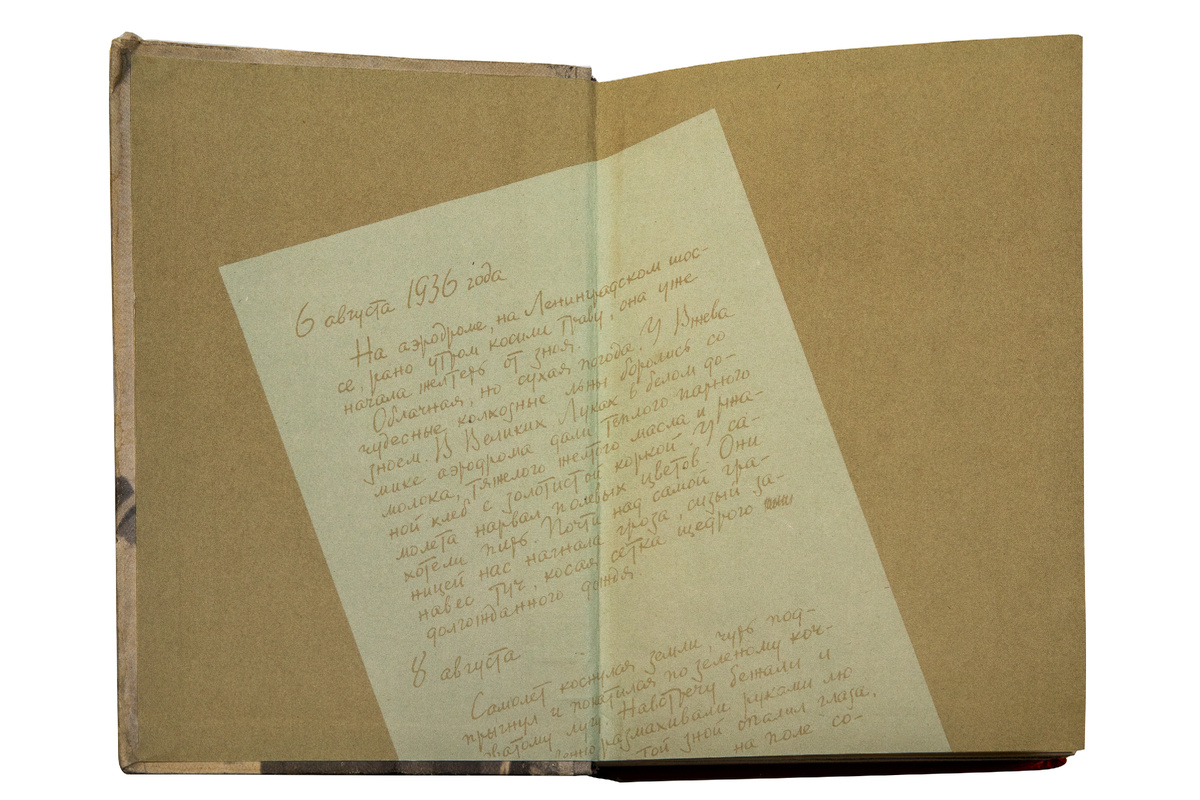 6 августа 1936 года
На аэродроме, на Ленинградском шос-
се, рано утром косили траву, она уже
начала желтеть от зноя.
Облачная, но сухая погода. У Ржева
чудесные колхозные льны боролись со
зноем. В Великих Луках в белом до-
мике аэродрома дали теплого парного
молока, тяжелого желтого масла и ржа-
ной хлеб с золотистой коркой. У са-
молета нарвал полевых цветов. Они
хотели пить. Почти над самой гра-
ницей нас нагнала гроза, сизый за-
навес туч, косая сетка щедрого
долгожданного дождя.
8 августа
Самолет коснулся земли, чуть под-
прыгнул и покатился по зеленому коч-
коватому лугу. Навстречу бежали и
размахивали руками лю
той зной опалил глаза.
на поле со-